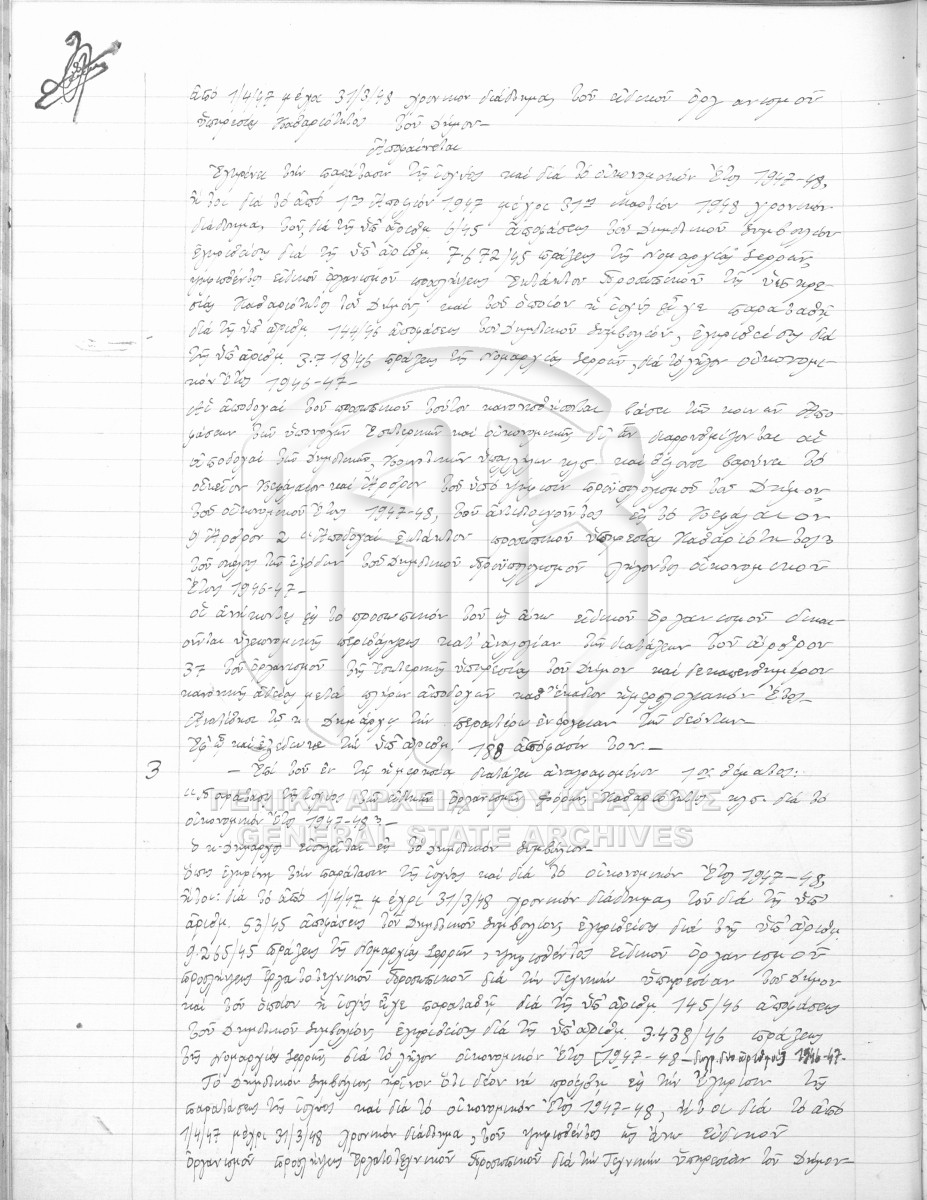 ἀπό 1/4/47 μέχρι 31/3/48 χρονικόν διάστημα, τοῦ εἰδικοῦ ὀργανισμοῦ
ὑπηρεσίας Καθαριότητος τοῦ Δήμου—
Ἀποφαίνεται
Ἐγκρίνει τήν παράτασιν τῆς ἰσχύος καί διά τό οἰκονομικόν ἔτος 1947-48,
ἤτοι διά τό ἀπό 1ης Ἀπριλίου 1947 μέχρι 31ης Μαρτίου 1948 χρονικόν
διάστημα, τοῦ διά τῆς ὑπ' ἀριθμ. 6/45 ἀποφάσεως τοῦ Δημοτικοῦ Συμβουλίου
ἐγκριθείσης διά τῆς ὑπ' ἀριθμ. 7672/45 πράξεως τῆς Νομαρχίας Σερρῶν,
ψηφισθέντος εἰδικοῦ ὀργανισμοῦ προσλήψεως Ἐκτάκτου Προσωπικοῦ τῆς ὑπηρε-
σίας Καθαριότητος τοῦ Δήμου, καί τοῦ ὁποίου ἡ ἰσχύς εἶχε παραταθῆ
διά τῆς ὑπ' ἀριθμ. 144/46 ἀποφάσεως τοῦ Δημοτικοῦ Συμβουλίου, ἐγκριθείσης διά
τῆς ὑπ' ἀριθμ. 3.718/46 πράξεως τῆς Νομαρχίας Σερρῶν, διά τό λῆγον οἰκονομι-
κόν ἔτος 1946-47—
Αἱ ἀποδοχαί τοῦ προσωπικοῦ τούτου κανονισθήσονται βάσει τῶν κοινῶν Ἀπο-
φάσεων τῶν ὑπουργῶν Ἐσωτερικῶν καί οἰκονομικῶν δι' ὧν διαρρυθμίζονται αἱ
ἀποδοχαί τῶν Δημοτικῶν, Κοινοτικῶν ὑπαλλήλων κλπ. καί θέλουσι βαρύνει τό
οἰκεῖον Κεφάλαιον καί Ἄρθρον τοῦ ὑπό ψήφισιν προϋπολογισμοῦ τοῦ Δήμου
τοῦ οἰκονομικοῦ ἔτους 1947-48, τοῦ ἀντιστοιχοῦντος εἰς τό Κεφάλαιον
9 Ἄρθρον 2 "Ἀποδοχαί ἐκτάκτου προσωπικοῦ ὑπηρεσίας Καθαριότητος"
τοῦ σκέλους τῶν ἐξόδων τοῦ Δημοτικοῦ Προϋπολογισμοῦ λήγοντος οἰκονομικοῦ
Ἔτους 1946-47—
Οἱ ἀνήκοντες εἰς τό προσωπικόν τοῦ ὡς ἄνω εἰδικοῦ Ὀργανισμοῦ δικαι-
οῦνται ὑγειονομικῆς περιθάλψεως κατ' ἀναλογίαν τῶν διατάξεων τοῦ ἄρθρου
37 τοῦ ὀργανισμοῦ τῆς Ἐσωτερικῆς ὑπηρεσίας τοῦ Δήμου καί δεκαπενθημέρου
κανονικῆς ἀδείας μετά πλήρων ἀποδοχῶν καθ' ἕκαστον ἡμερολογιακόν Ἔτος—
Ἀνατίθησι τῷ κ. Δημάρχῳ τήν περαιτέρω ἐνέργειαν τῶν δεόντων—
Ἐφ' ᾧ καί ἐξέδωκε τήν ὑπ' ἀριθμ. 188 ἀπόφασίν του.—
3 — Ἐπί τοῦ ἐν τῇ ἡμερησίᾳ διατάξει ἀναγραφομένου 1ου θέματος:
"Παράτασις τῆς ἰσχύος τῶν εἰδικῶν Ὀργανισμῶν Φόρου, Καθαριότητος κλπ. διά τό
οἰκονομικόν Ἔτος 1947-48".—
Ὁ κ. Δήμαρχος εἰσηγεῖται εἰς τό Δημοτικόν Συμβούλιον—
ὅπως ἐγκρίνῃ τήν παράτασιν τῆς ἰσχύος καί διά τό οἰκονομικόν Ἔτος 1947-48,
ἤτοι: διά τό ἀπό 1/4/47 μέχρι 31/3/48 χρονικόν διάστημα, τοῦ διά τῆς ὑπ'
ἀριθμ. 53/45 ἀποφάσεως τοῦ Δημοτικοῦ Συμβουλίου, ἐγκριθείσης διά τῆς ὑπ' ἀριθμ.
9.265/45 πράξεως τῆς Νομαρχίας Σερρῶν, ψηφισθέντος εἰδικοῦ ὀργανισμοῦ
προσλήψεως ἐργατοτεχνικοῦ Προσωπικοῦ διά τήν Τεχνικήν ὑπηρεσίαν τοῦ Δήμου
καί τοῦ ὁποίου ἡ ἰσχύς εἶχε παραταθῆ διά τῆς ὑπ' ἀριθμ. 145/46 ἀποφάσεως
τοῦ Δημοτικοῦ Συμβουλίου, ἐγκριθείσης διά τῆς ὑπ' ἀριθμ. 3.438/46 πράξεως
τῆς Νομαρχίας Σερρῶν, διά τό λῆγον οἰκονομικόν Ἔτος 1947-48— 1946-47.
Τό Δημοτικόν Συμβούλιον, κρῖνον ὅτι δέον νά προέλθῃ εἰς τήν ἔγκρισιν τῆς
παρατάσεως τῆς ἰσχύος καί διά τό οἰκονομικόν Ἔτος 1947-48, ἤτοι διά τό ἀπό
1/4/47 μέχρι 31/3/48 χρονικόν διάστημα, τοῦ ψηφισθέντος ὡς ἄνω εἰδικοῦ
ὀργανισμοῦ προσλήψεως Ἐργατοτεχνικοῦ Προσωπικοῦ διά τήν Τεχνικήν ὑπηρεσίαν τοῦ Δήμου—
ΓΕΝΙΚΑ ΑΡΧΕΙΑ ΤΟΥ ΚΡΑΤΟΥΣ
GENERAL STATE ARCHIVES